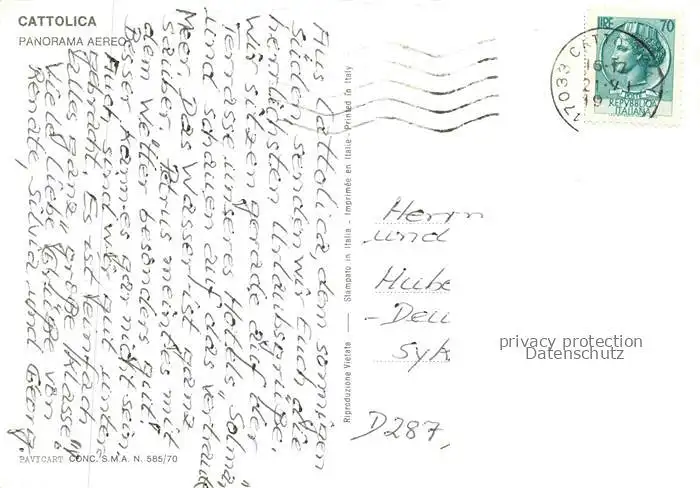 CATTOLICA
PANORAMA AEREO
Aus Cattolica, dem sonnigen
Süden, senden wir Euch die
herrlichsten Urlaubsgrüße.
Wir sitzen gerade auf der
Terrasse unseres Hotels "Solmar"
und schauen auf das vertraute
Meer. Das Wasser ist ganz
sauber. Petrus meint es mit
dem Wetter besonders gut.
Besser kann es gar nicht sein.
Auch sind wir gut unter-
gebracht. Es ist einfach
alles ganz "große Klasse"!
Viele liebe Grüße von
Renate, Silvia und Georg.
PAVICART CONC. S.M.A. N. 585/70
Riproduzione Vietata — Stampato in Italia - Imprimée en Italie - Printed in Italy
LIRE 70
REPVBBLICA
ITALIANA
17033 CATT
16-17
19
Herrn
und
Hube
-Deu
Syk
D 287,
privacy protection
Datenschutz